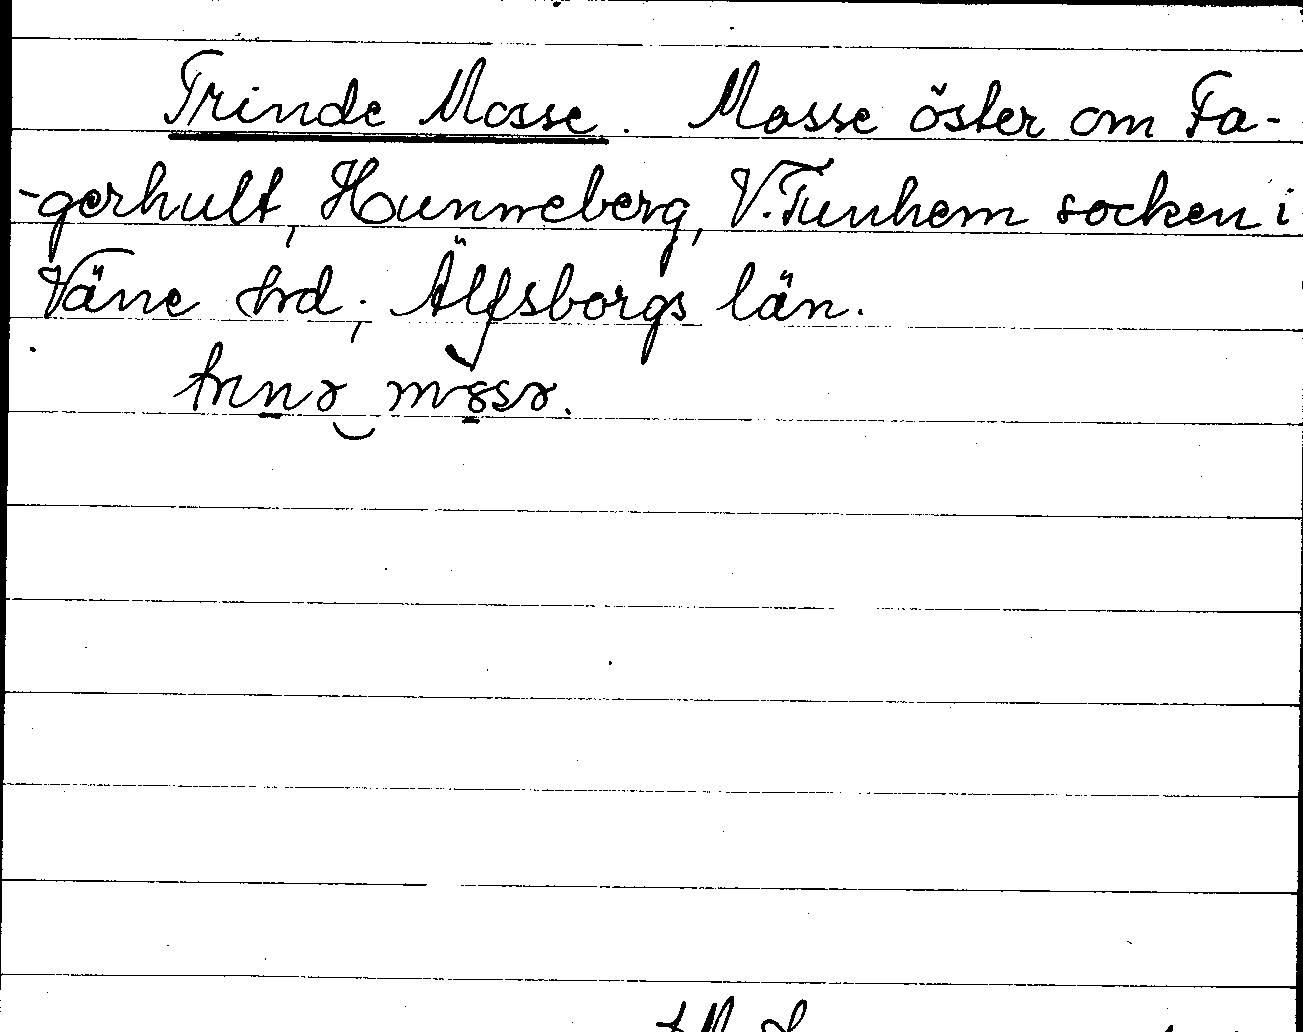 Trinde Mosse. Mosse öster om Fa-
-gerhult, Hunneberg, V. Tunhem socken i
Väne hrd; Älfsborgs län.